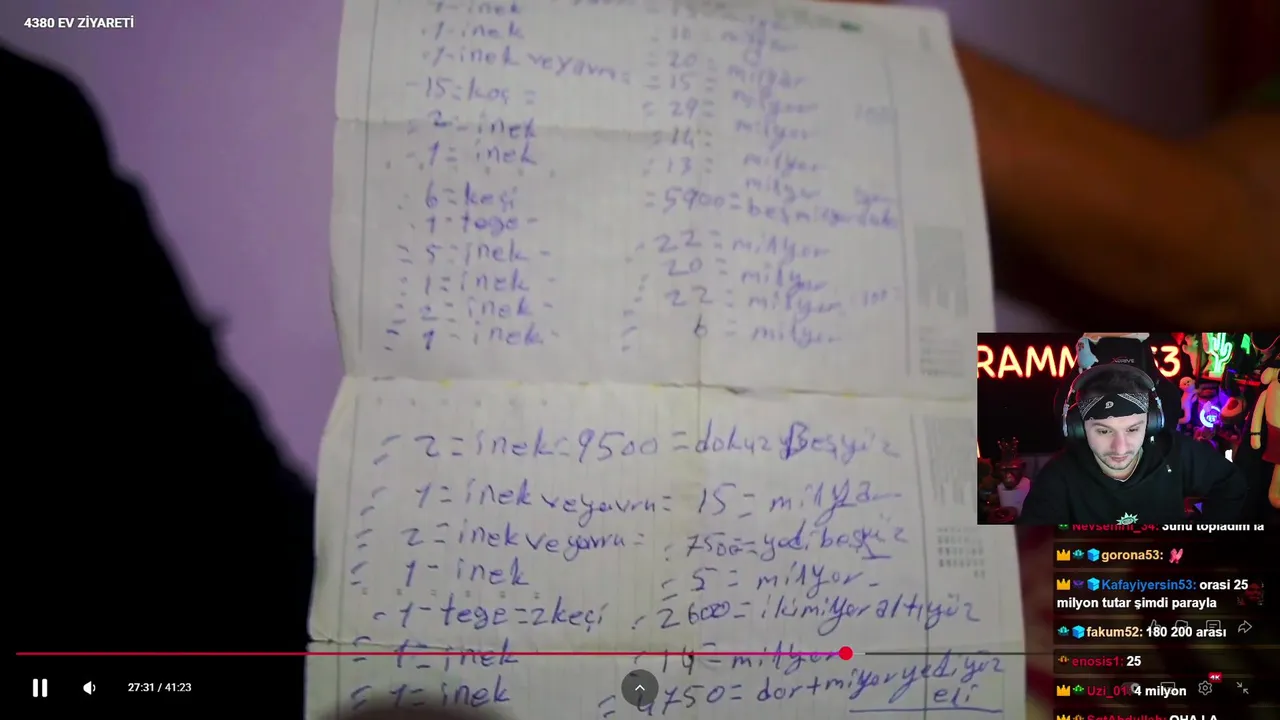 4380 EV ZİYARETİ
1-inek
1-inek = 20 = milyar
1-inek veyavru = 15 = milyar
-15=koç = 29= milyor
2-inek = 14= milyor
-1= inek = 13= milyor
6=keçi =5900=
1-tege-
= 5=inek- -22=milyor
= 1=inek- 20 milyor
= 2=inek- 22=milyor
= 1-inek- = 6=milyor
= 2=inek=9500=dokuz Beşyüz
= 1=inek veyavru= 15=milya
= 2=inek veyavru= 7500=yedi beşyüz
= 1-inek =5=milyor-
-1-tege=2keçi 2600=ikimilyoraltıyüz
= 1-inek 14=milyor
= 1=inek = 4750=dortmilyoryediyüz
eli
RAMM 53
Nevsehirli_34: Şunu topladım la
gorona53:
Kafayiyersin53: orasi 25
milyon tutar şimdi parayla
fakum52: 180 200 arası
enosis1: 25
Uzi_01: 4 milyon
4K
SetAbdullah: OHA LA
27:31 / 41:23